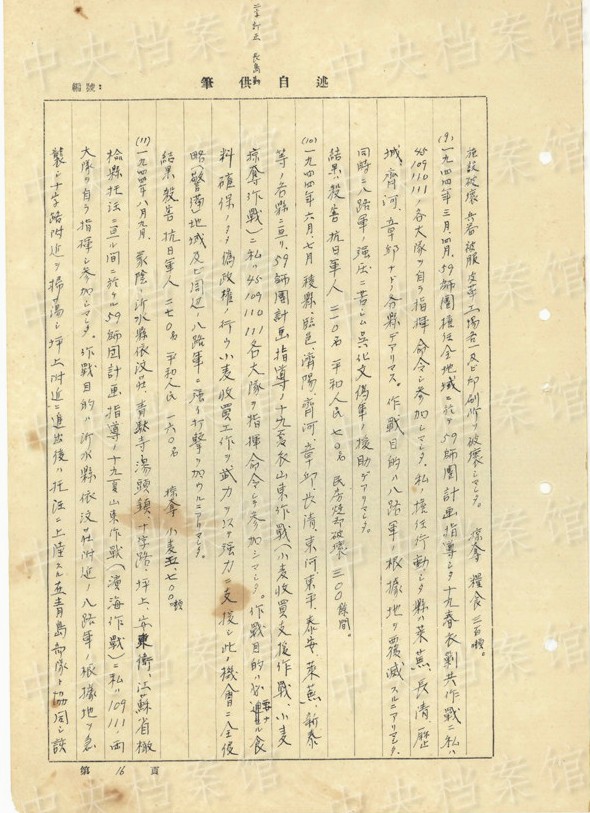 二字訂正 長島勤
述自供筆
編號:
施設破壊 兵器被服皮革工場各一及ビ印刷所ヲ破壊シマシタ。 掠奪 糧食 三百噸。
(9) 一九四四年三月、四月、59師團擔任全地域ニ於テ 59師團計画指導シタ十九春衣剿共作戰ニ私ハ
45 109 110 111 各大隊ヲ自ラ指揮 命令シ参加シマシタ、私ノ擔任行動シタ縣ハ萊蕪、長清、歷
城、齊河、章邱ナドノ各縣デアリマス。作戰目的ハ八路軍ノ根據地ヲ覆滅スルニアリマシタ、
同時ニ八路軍ノ强圧ニ苦シム呉化文偽軍ノ援助デアリマシタ。
結果 殺害 抗日軍人 二一〇名 平和人民 七〇名 民房焼却破壊 三〇〇餘間。
(10) 一九四四年六月、七月 稜縣、臨邑、濟陽、齊河、章邱、長清、東河、東平、泰安、萊蕪、新泰
等ノ各縣ニ亘リ、59師團計画指導ノ十九夏衣山東作戰(小麦收買支援作戰、小麦
掠奪作戰)ニ私ハ 45 109 110 111 各大隊ヲ指揮命令シテ参加シマシタ。作戰目的ハ必要ナル食
料確保ノタメ偽政權ノ行フ小麦收買工作ヲ武力ヲ以テ强力ニ支援シ此ノ機會ニ全侵
略(警備)地域及ビ周辺ノ八路軍ニ强キ打擊ヲ加フルニアリマシタ。
結果 殺害 抗日軍人 二七〇名 平和人民 一六〇名 掠奪 小麦五、七〇〇噸
(11) 一九四四年八月九月、蒙陰、沂水縣依汶莊、青駝寺、湯頭鎮、十字路、坪上、安東衛ハ江蘇省檢
檢縣 托汪ニ亘ル间ニ於ケル 59師团計画指導ノ十九夏山東作戰(濱海作戰)ニ私ハ 109 111 両
大隊ヲ自ラ指揮シ参加シマシタ。作戰目的ハ沂水縣依汶莊附近ノ八路軍ノ根據地ヲ急
襲シ十字路附近ヲ掃蕩シ坪上附近ニ進出後ハ托汪ニ上陸スル五青島部隊ト協同シ該
第 16 頁
中央档案馆